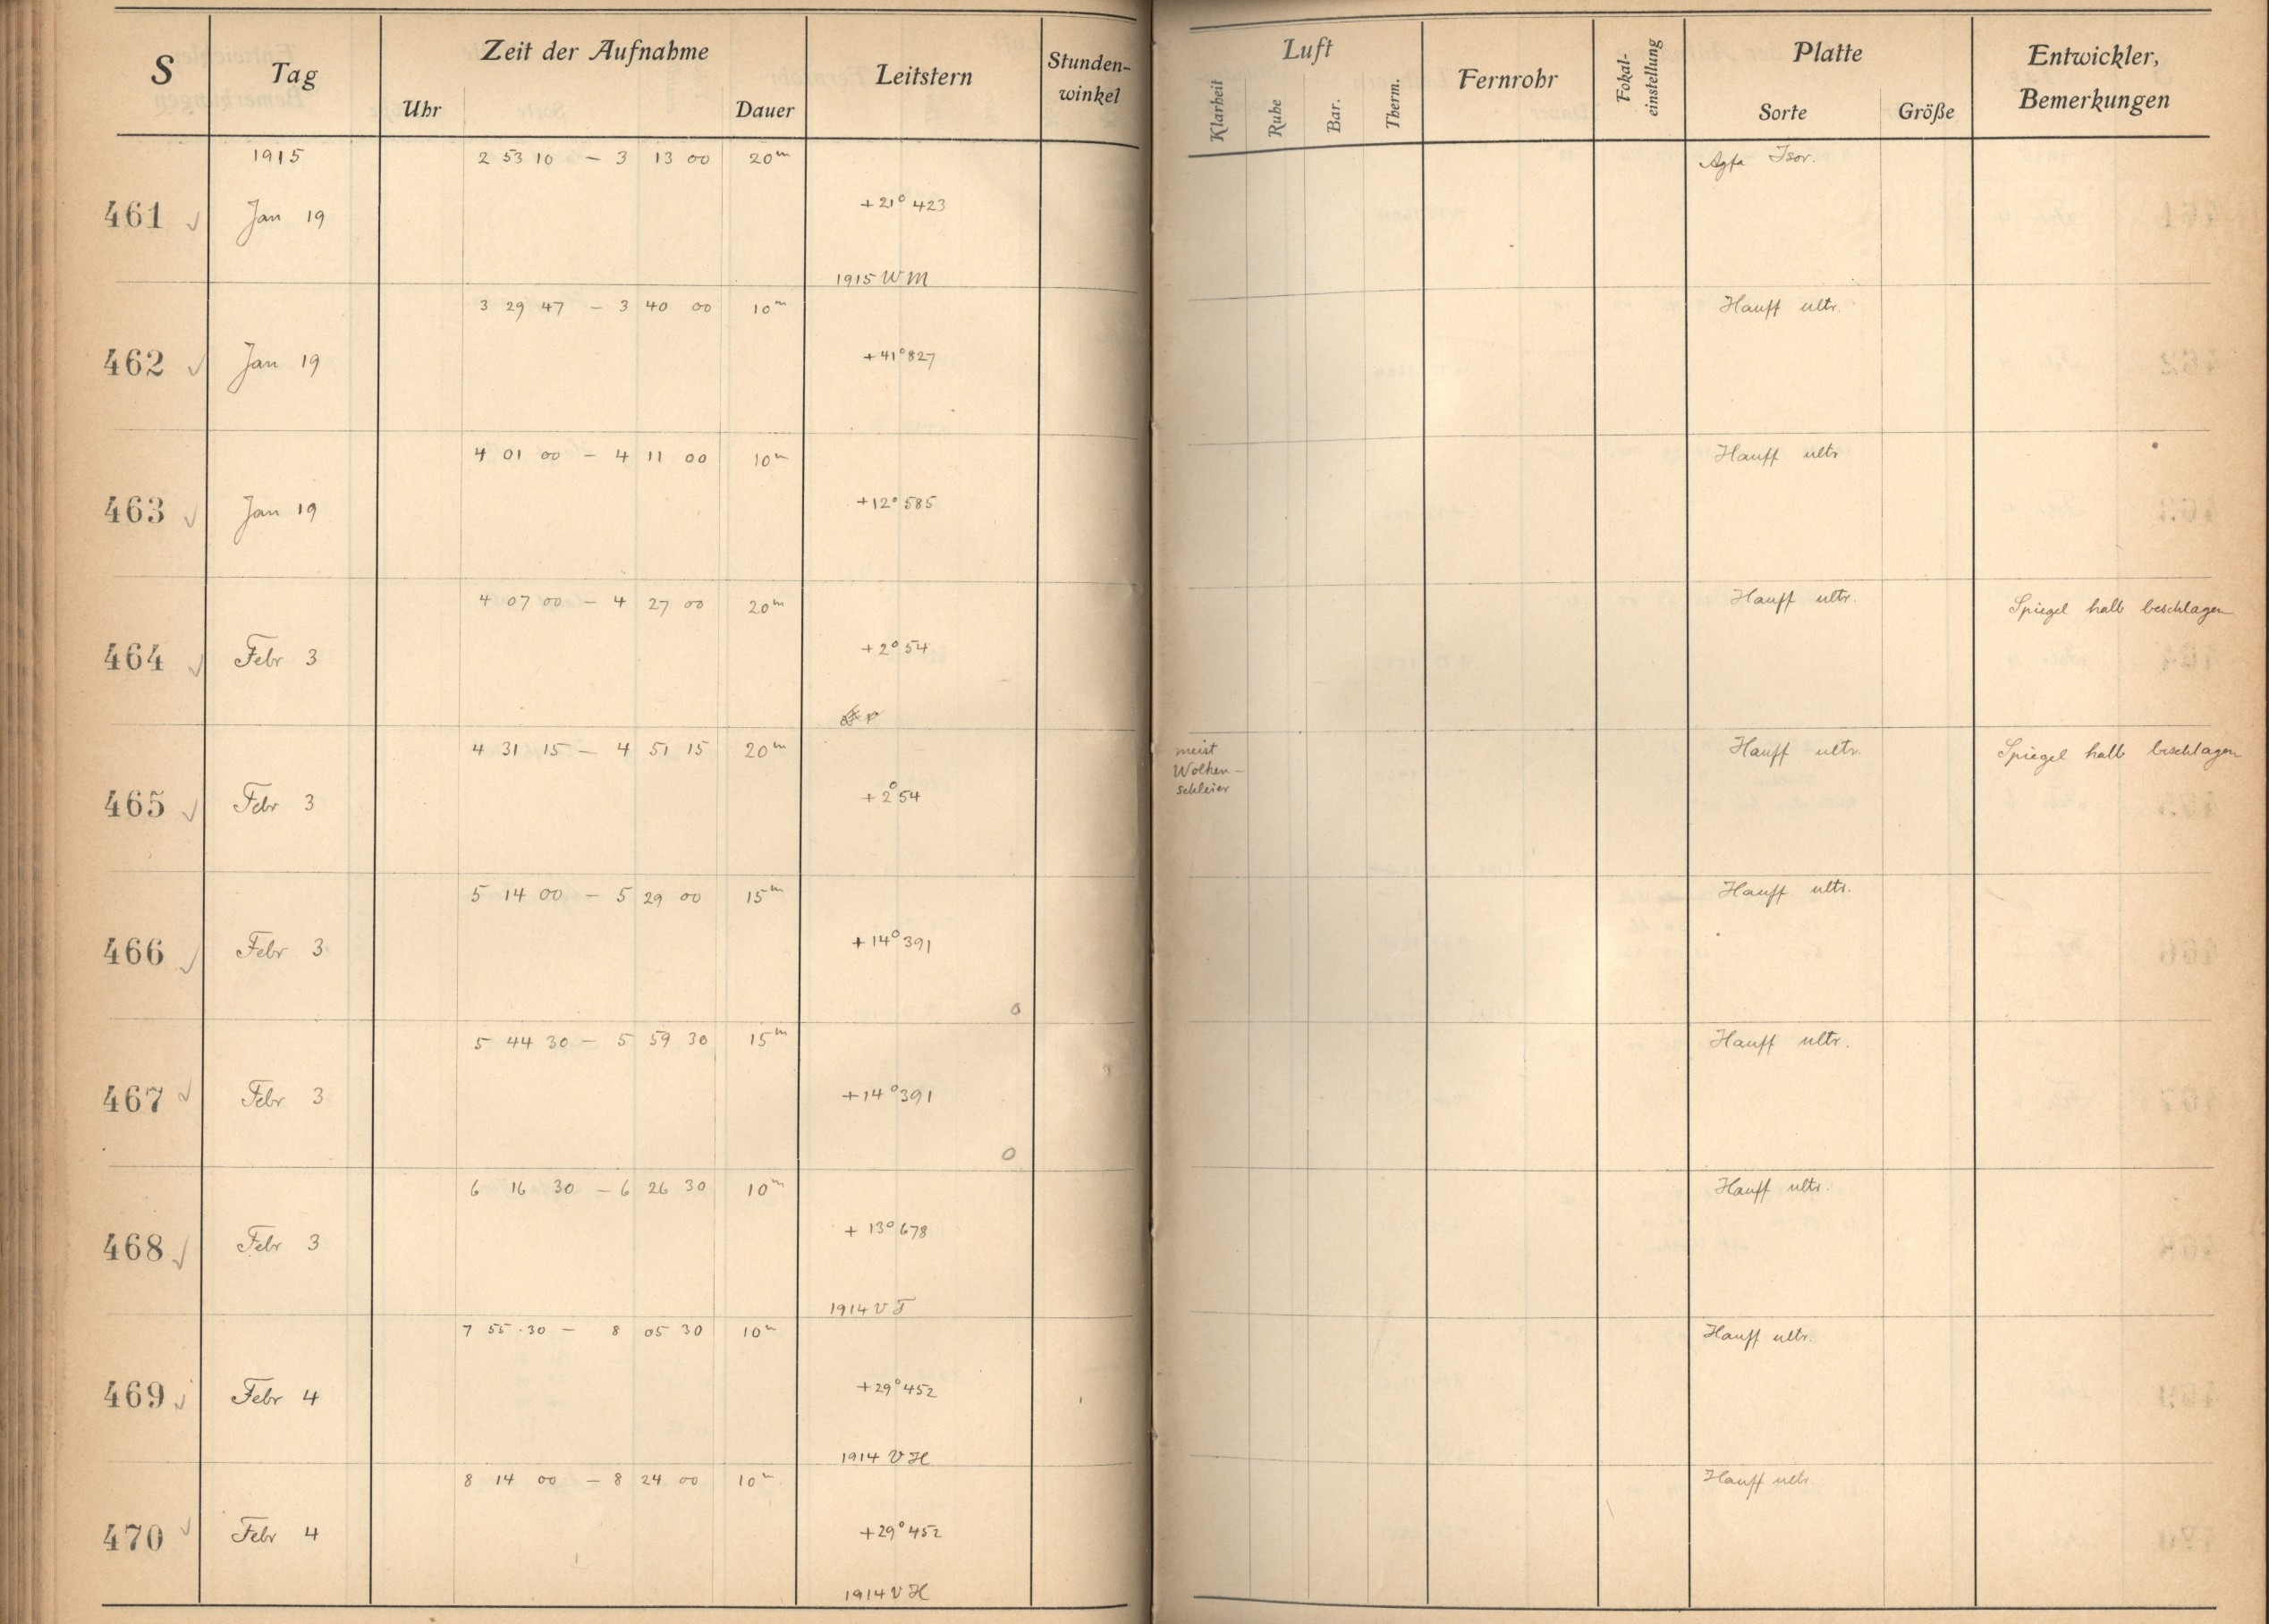 S Tag Zeit der Aufnahme Leitstern Stunden-winkel Luft Fernrohr Fokal-einstellung Platte Entwickler, Bemerkungen
Uhr Dauer Klarheit Ruhe Bar. Therm. Sorte Größe
1915 2 53 10 – 3 13 00 20m Agfa Isor.
461 Jan 19 +21° 423
1915 WM
3 29 47 – 3 40 00 10m Hauff ultr.
462 Jan 19 +41° 827
4 01 00 – 4 11 00 10m Hauff ultr
463 Jan 19 +12° 585
4 07 00 – 4 27 00 20m Hauff ultr. Spiegel halb beschlagen
464 Febr 3 +2° 54
4 31 15 – 4 51 15 20m meist Wolken-schleier Hauff ultr. Spiegel halb beschlagen
465 Febr 3 +2° 54
5 14 00 – 5 29 00 15m Hauff ultr.
466 Febr 3 +14° 391
0
5 44 30 – 5 59 30 15m Hauff ultr.
467 Febr 3 +14° 391
0
6 16 30 – 6 26 30 10m Hauff ultr.
468 Febr 3 +13° 678
1914 V
7 55 30 – 8 05 30 10m Hauff ultr.
469 Febr 4 +29° 452
1914 VH
8 14 00 – 8 24 00 10m Hauff ultr
470 Febr 4 +29° 452
1914 VH